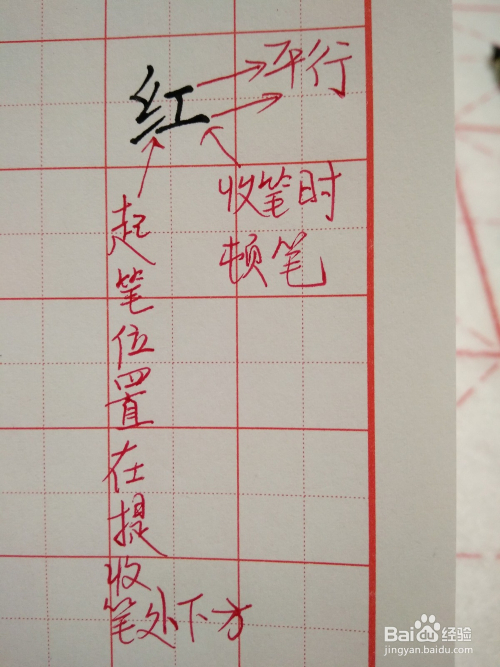 红
平行
收笔时
顿笔
起笔位置在提收笔处下方
Baidu经验
jingyan.baidu.com